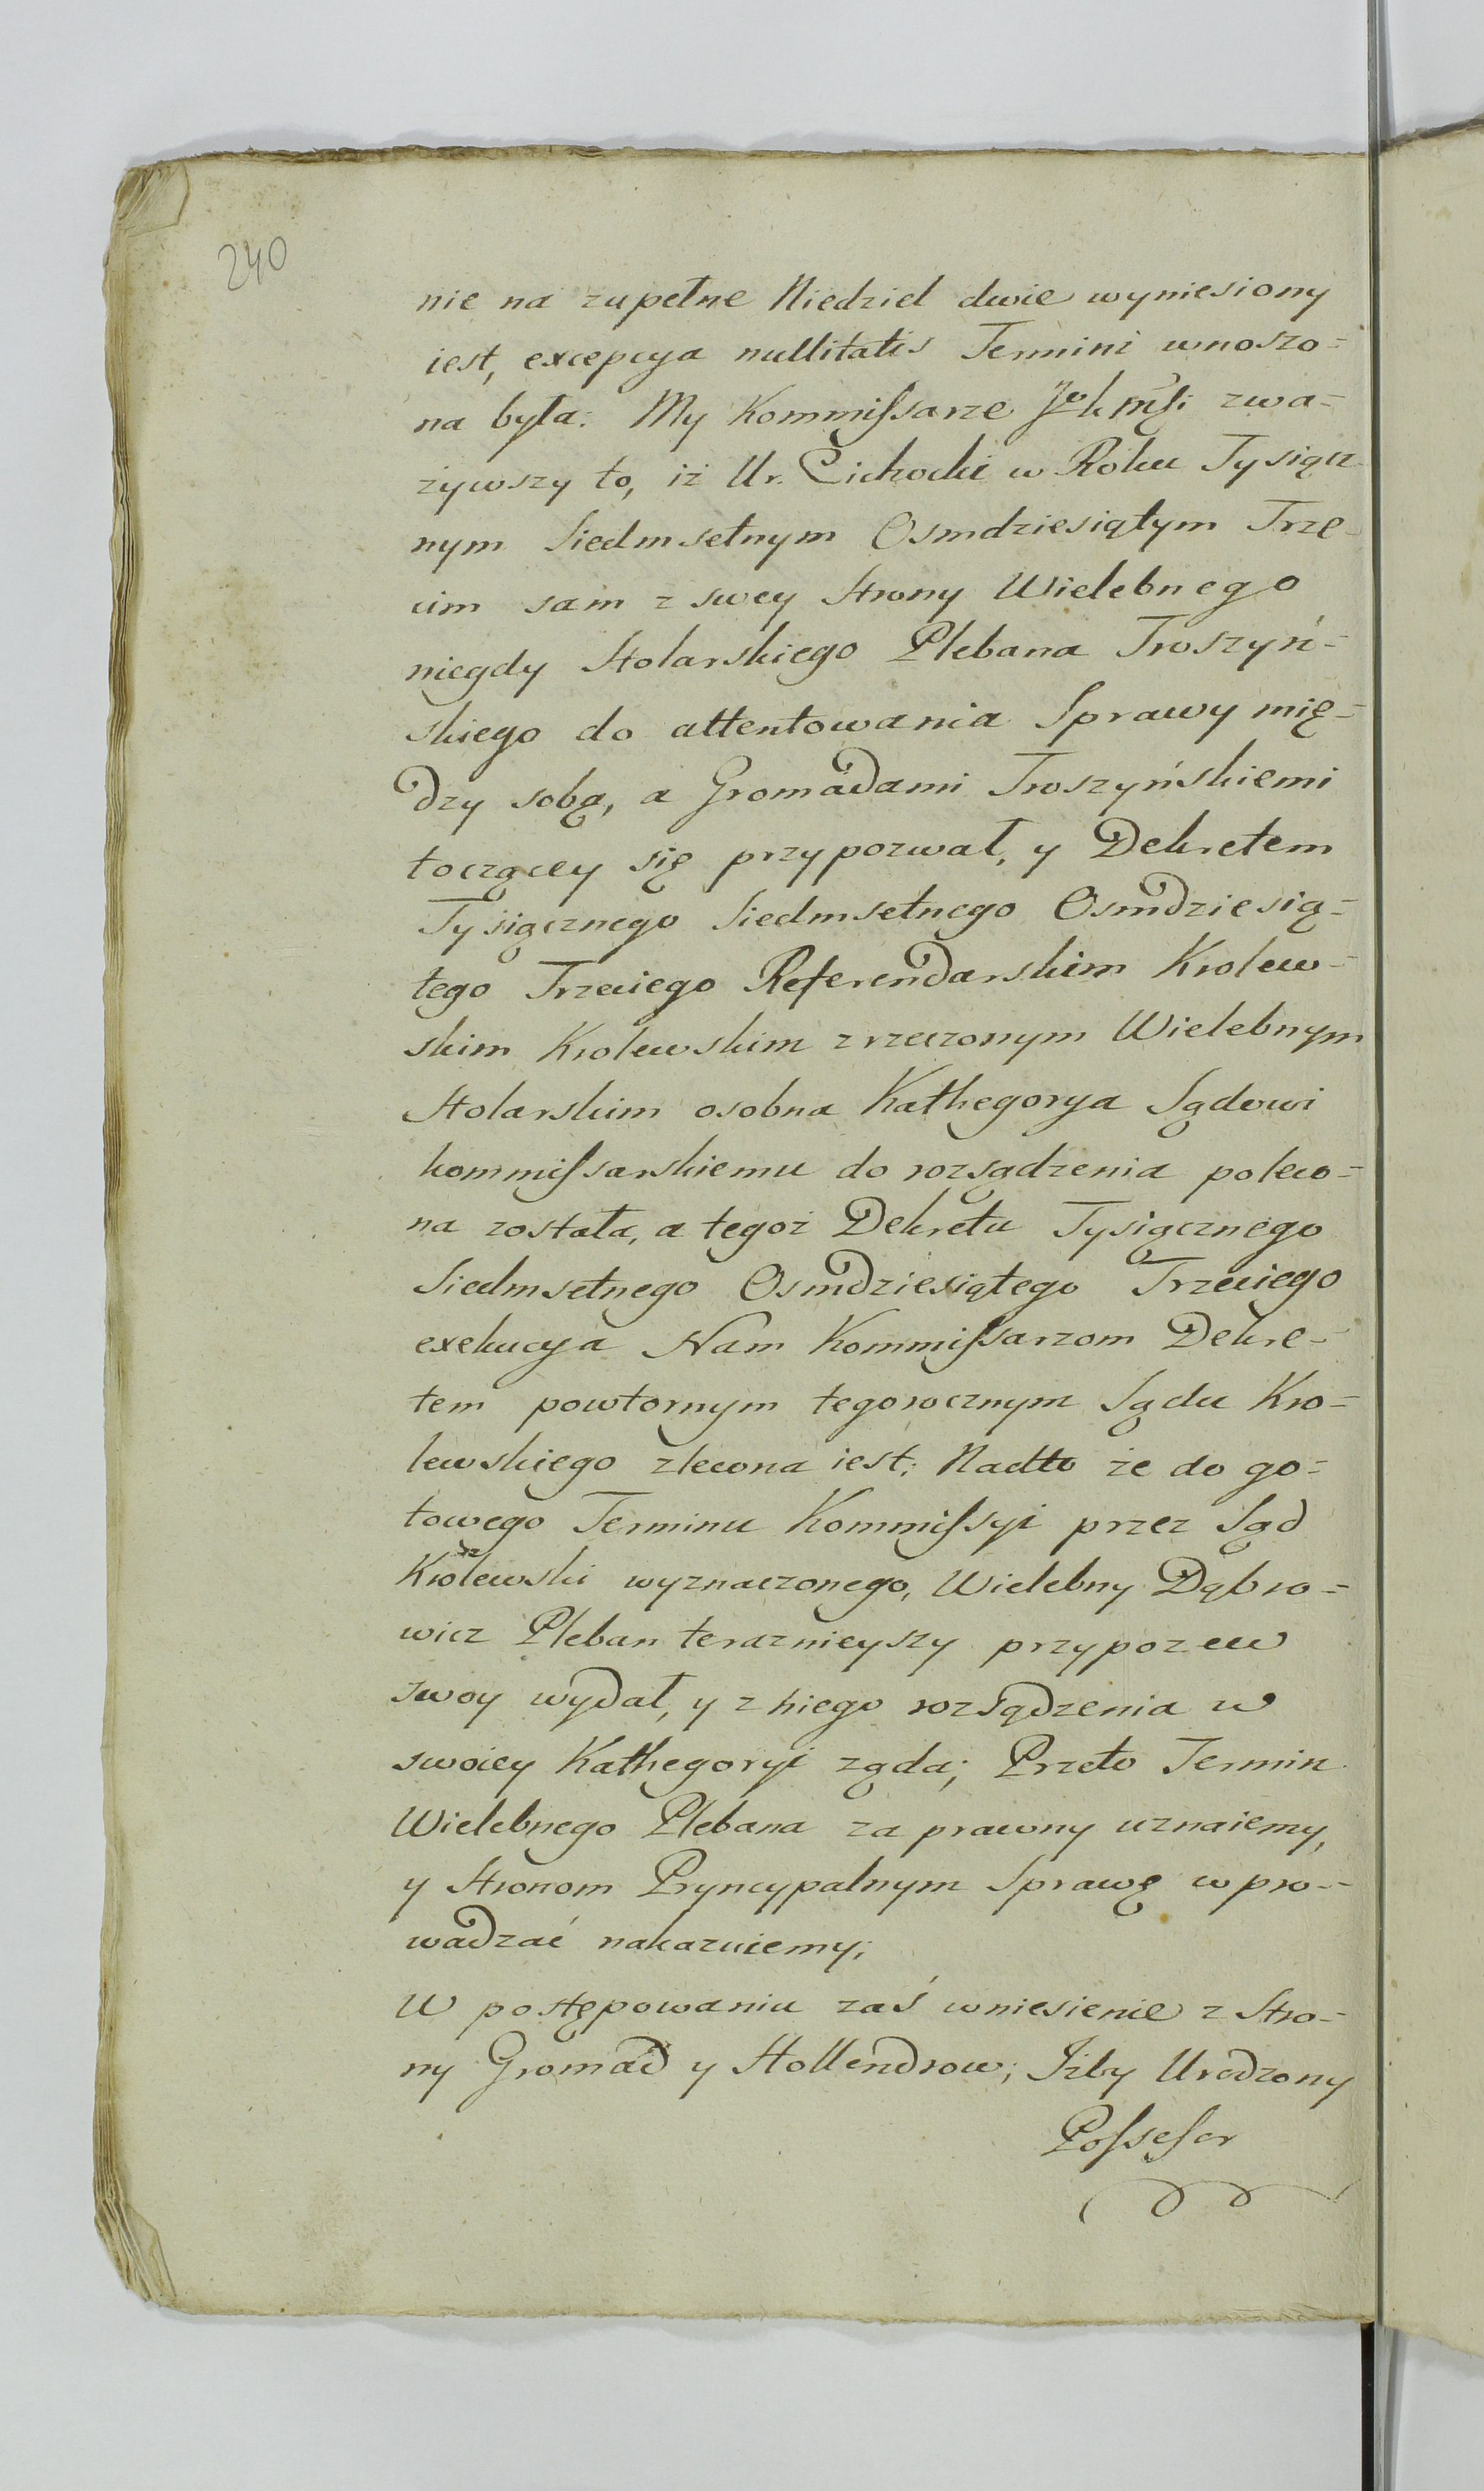 240
nie na zupełne Niedziel dwie wyniesiony
iest, excepcya nullitatis Termini wnoszo=
na była: My Kommissarze zwa=
żywszy to, iż Ur. Cichocki w Roku Tysiącz
nym Siedmsetnym Osmdziesiątym Trze
cim sam z swey Strony Wielebnego
niegdy Stolarskiego Plebana Troszyń=
skiego do attentowania Sprawy mię=
dzy sobą, a Gromadami Troszyńskiemi
toczącey się przypozwał, y Dekretem
Tysiącznego Siedmsetnego Osmdziesią=
tego Trzeciego Referendarskim Krolew=
skim Krolewskim z rzeczonym Wielebnym
Stolarskim osobna Kathegorya Sądowi
kommissarskiemu do rozsądzenia poleco=
na została, a tegoż Dekretu Tysiącznego
Siedmsetnego Osmdziesiątego Trzeciego
exekucya Nam Kommissarzom Dekre=
tem powtornym tegorocznym Sądu Kro=
lewskiego zlecona iest; Nadto że do go=
towego Terminu Kommissyi przez Sąd
Krolewski wyznaczonego, Wielebny Dąbro=
wicz Pleban teraznieyszy przypozew
swoy wydał, y z niego rozsądzenia w
swoiey Kathegoryi żąda; Przeto Termin
Wielebnego Plebana za prawny uznaiemy,
y Stronom Pryncypalnym Sprawę wpro=
wadzać nakazuiemy;
W postępowaniu zaś wniesienie z Stro=
ny Gromad y Hollendrow; Iżby Urodzony
Possessor